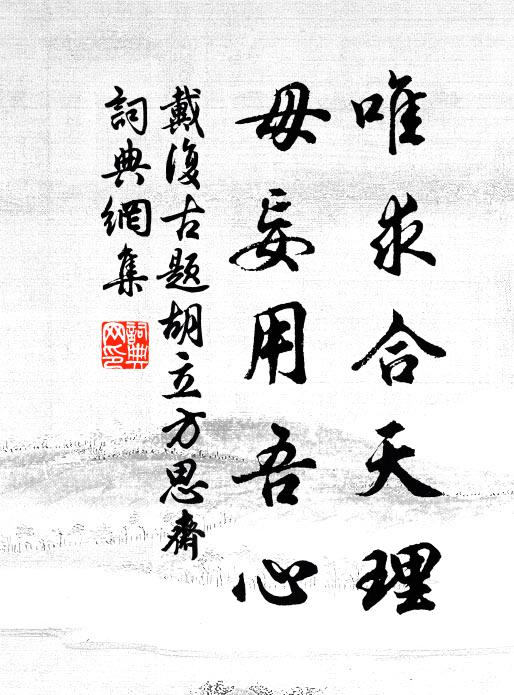 唯求合天理
毋妄用吾心
戴復古题胡立方思齋
詞典網集
詞典
网印